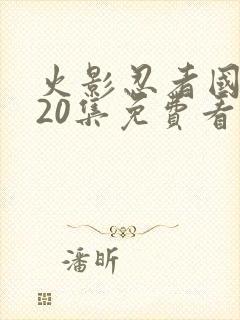 火影忍者國
20集免費看
潘昕